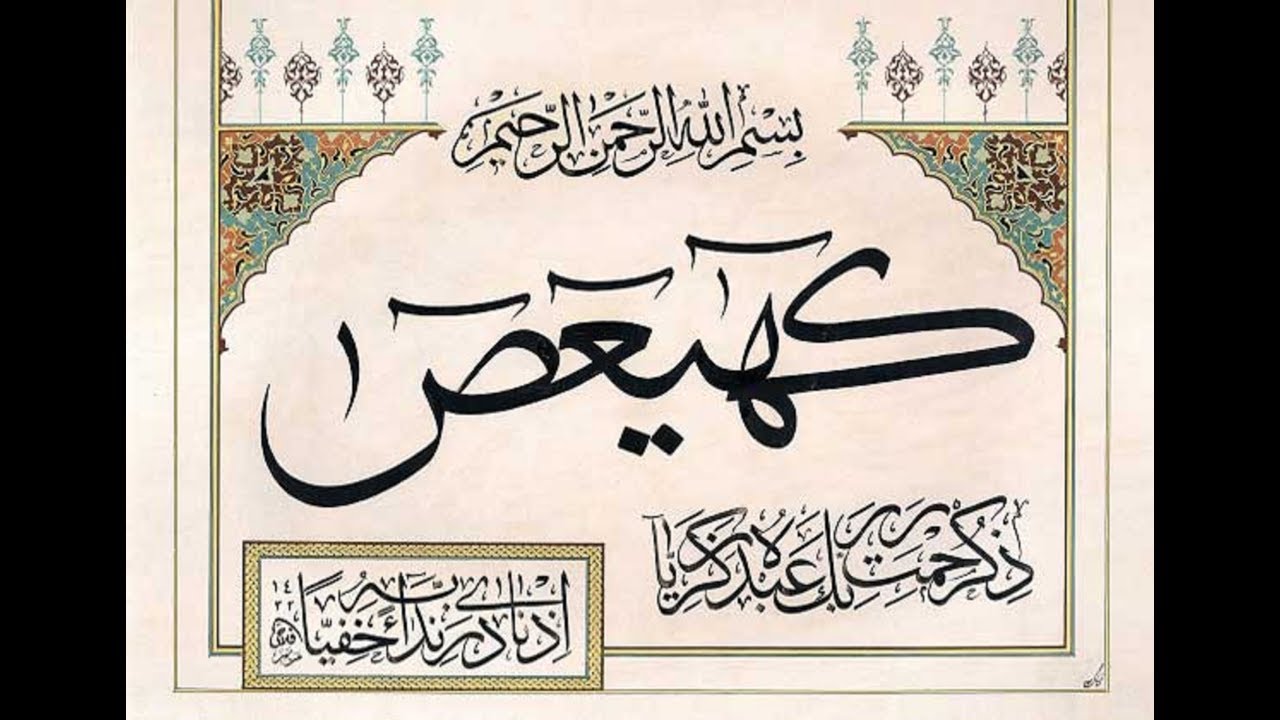 بِسْمِ اللهِ الرَّحْمٰنِ الرَّحِيْمِ
كٓهٰيٰعٓصٓ
ذِكْرُ رَحْمَتِ رَبِّكَ عَبْدَهُ زَكَرِيَّآ
اِذْ نَادٰى رَبَّهُ نِدَآءً خَفِيًّا
١٤٢٢